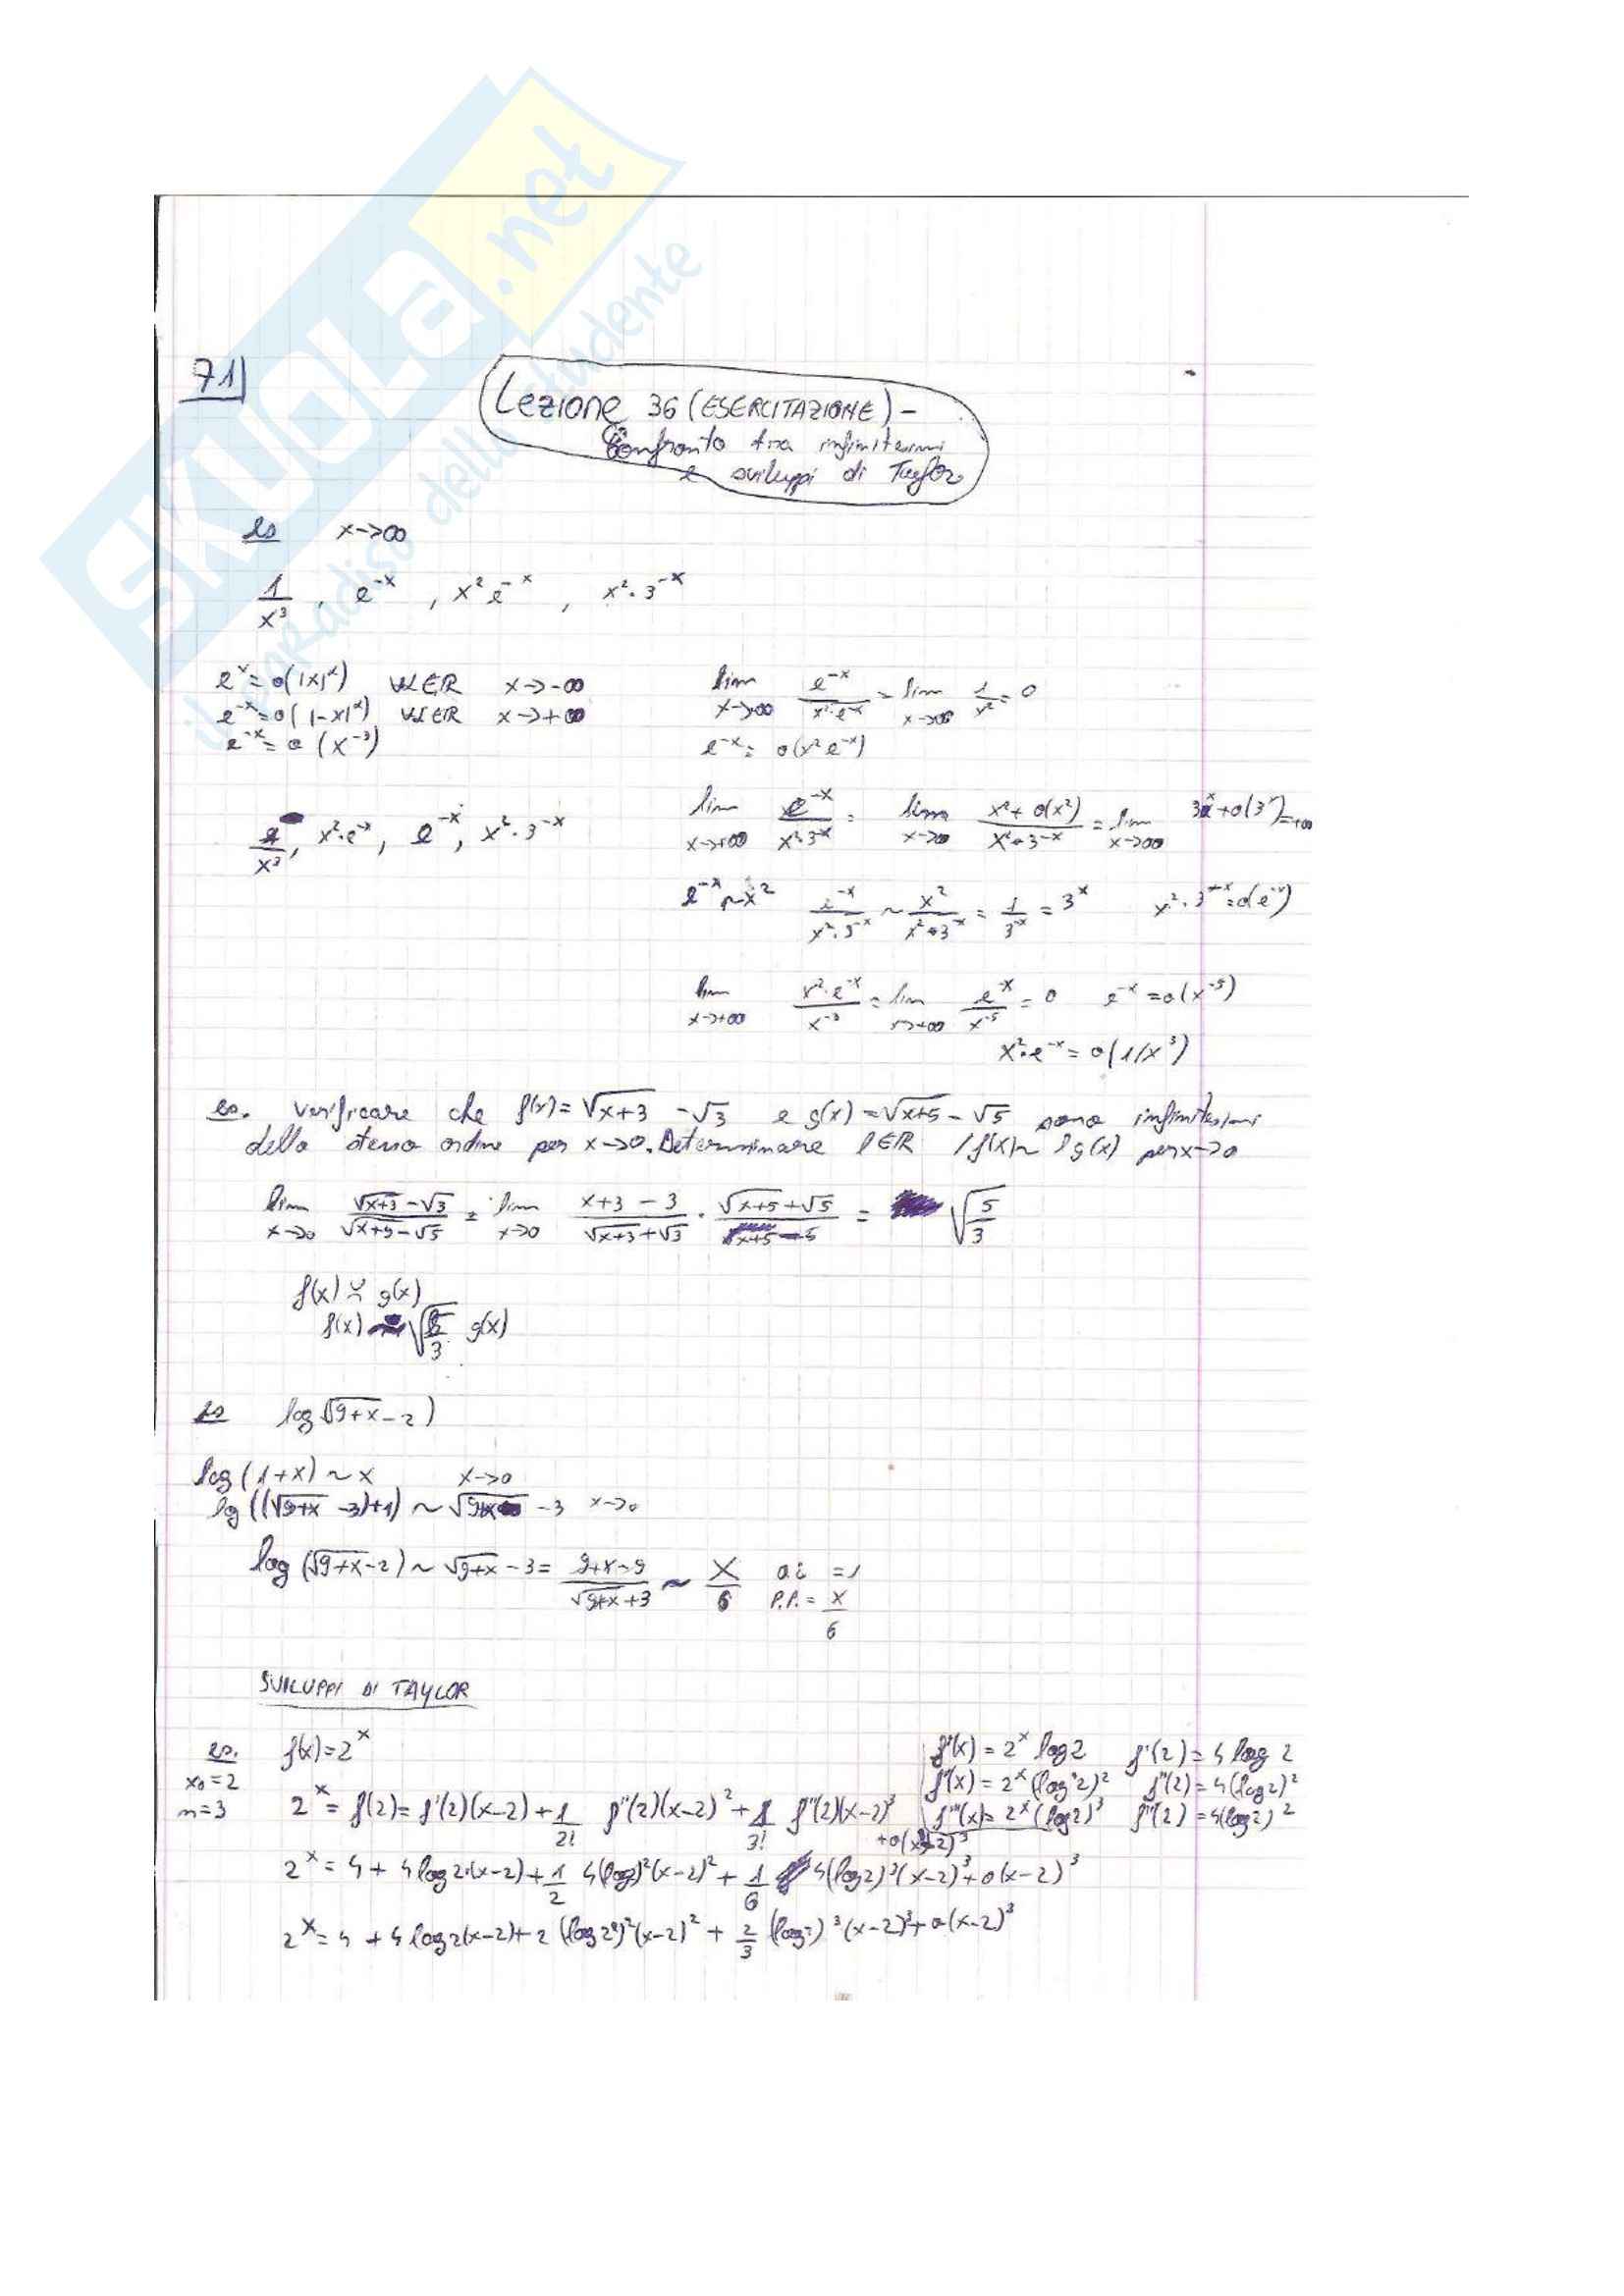 SKUOLA.net
il paradiso dello studente
71
Lezione 36 (ESERCITAZIONE) -
Confronto tra infinitesimi
e sviluppi di Taylor
es x->∞
1/x³ , e^-x , x² e^-x , x²·3^-x
e^x = o(|x|^α) ∀α∈R x->-∞
e^-x = o(|-x|^α) ∀α∈R x->+∞
e^-x = o(x^-3)
lim x->∞ e^-x/(x²·e^-x) = lim x->∞ 1/x² = 0
e^-x = o(x² e^-x)
/x³, x²·e^-x, e^-x, x²·3^-x
lim x->+∞ e^-x/(x²·3^-x) = lim x->∞ (x²+o(x²))/(x²·3^-x) = lim x->∞ 3^x+o(3^x) = +∞
e^-x ~ x² e^-x/(x²·3^-x) ~ x²/(x²·3^-x) = 1/3^-x = 3^x x²·3^-x = o(e^-x)
lim x->+∞ x²·e^-x/x^-3 = lim x->+∞ e^-x/x^-5 = 0 e^-x = o(x^-5)
x²·e^-x = o(1/x³)
es. verificare che f(x)=√(x+3) -√3 e g(x)=√(x+5) - √5 sono infinitesimi
dello stesso ordine per x->0. Determinare l∈R / f(x)~ l g(x) per x->0
lim x->0 (√(x+3) -√3)/(√(x+5) -√5) = lim x->0 (x+3-3)/(√(x+3)+√3) · (√(x+5)+√5)/(x+5-5) = √(5/3)
f(x) ≍ g(x)
f(x) ~ √(5/3) g(x)
es log √(9+x) - 2)
log(1+x) ~ x x->0
lg((√(9+x) -3)+1) ~ √(9+x) -3 x->0
log(√(9+x) -2) ~ √(9+x) -3 = (9+x-9)/(√(9+x)+3) ~ x/6 oi =1
P.P. = x/6
SVILUPPI DI TAYLOR
es. f(x)=2^x
x₀=2
n=3
f'(x) = 2^x log2 f'(2) = 4 log 2
f''(x) = 2^x (log 2)² f''(2) = 4(log2)²
f'''(x) = 2^x (log2)³ f'''(2) = 4(log2)²
2^x = f(2) = f'(2)(x-2) + 1/2! f''(2)(x-2)² + 1/3! f'''(2)(x-2)³
+o(x-2)³
2^x = 4 + 4 log2·(x-2) + 1/2 4(log2)²(x-2)² + 1/6 4(log2)³(x-2)³ + o(x-2)³
2^x = 4 + 4 log2(x-2) + 2 (log2)²(x-2)² + 2/3 (log2)³(x-2)³ + o(x-2)³